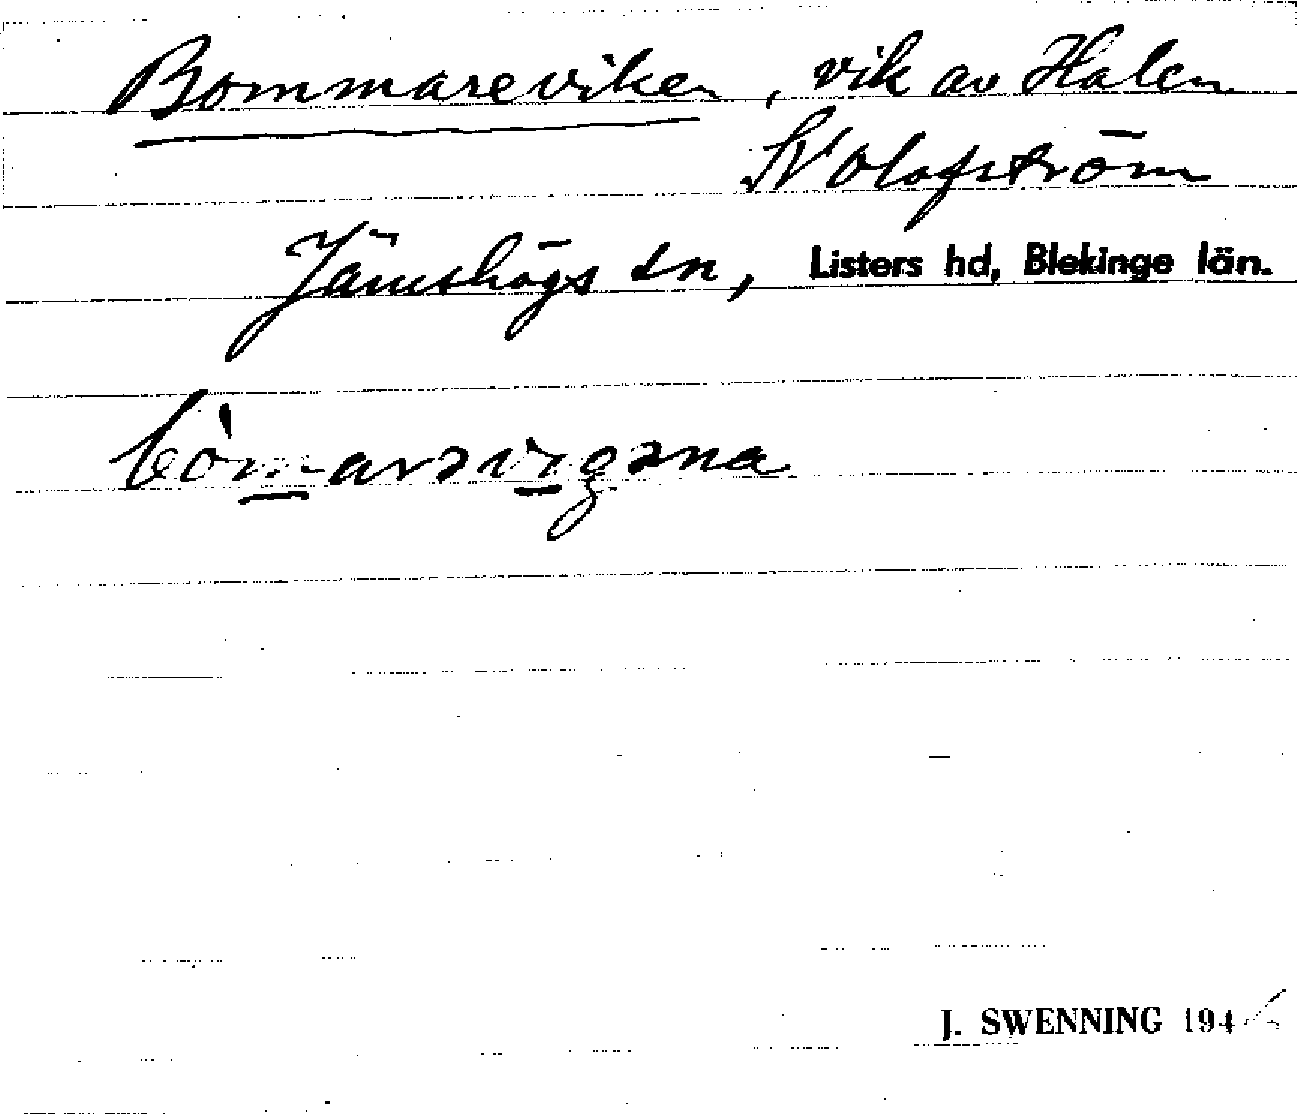 Bommareviken, vik av Halen
N Olofström
Jämshögs sn, Listers hd, Blekinge län.
J. SWENNING 194